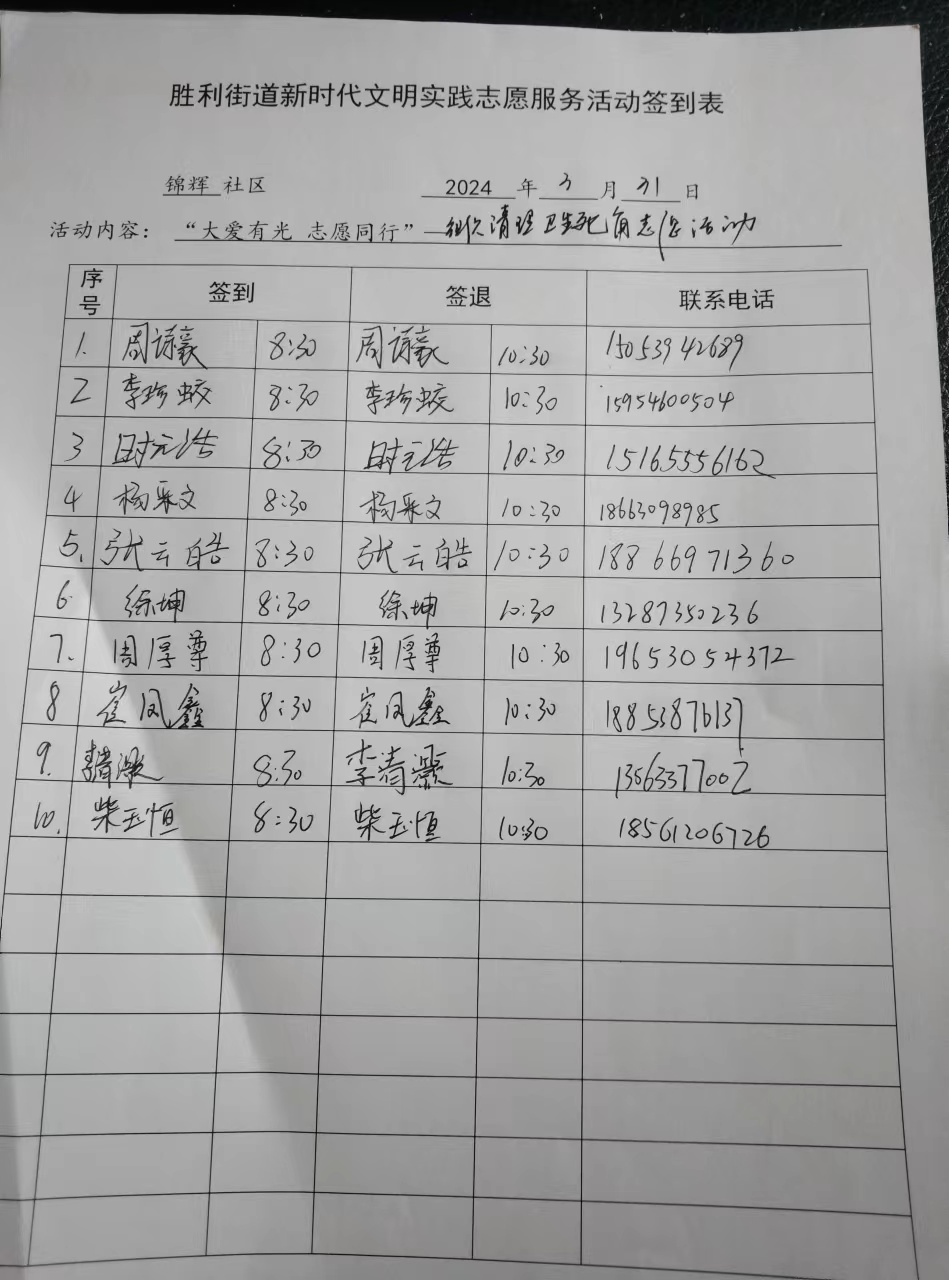 胜利街道新时代文明实践志愿服务活动签到表
锦辉 社区 2024 年 3 月 31 日
活动内容：“大爱有光 志愿同行”—组织清理卫生死角志愿活动
序号 签到 签退 联系电话
1. 周 8:30 周 10:30 15053942689
2 李珍蛟 8:30 李珍蛟 10:30 15954600504
3 时元浩 8:30 时元浩 10:30 15165556162
4 杨采文 8:30 杨采文 10:30 18663098985
5. 张云皓 8:30 张云皓 10:30 18866971360
6. 徐坤 8:30 徐坤 10:30 13287350236
7. 周厚尊 8:30 周厚尊 10:30 19653054372
8 崔凤鑫 8:30 崔凤鑫 10:30 18853876137
9. 李清灏 8:30 李清灏 10:30 13563377002
10. 柴玉恒 8:30 柴玉恒 10:30 18561206726